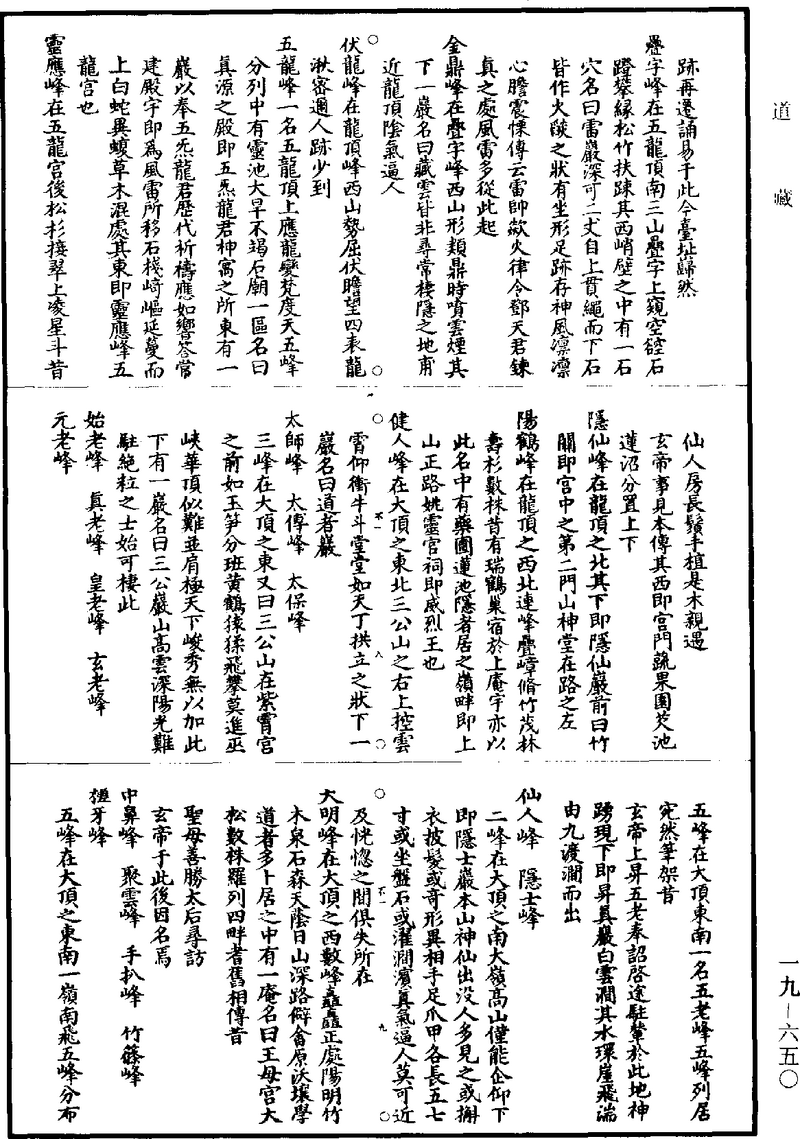 道藏
跡再遷誦易于此今臺址巋然
疊字峰在五龍頂南三山疊字上窺空磴石
蹬攀緣松竹扶踈其西峭壁之中有一石
穴名曰雷巖深可二丈自上貫繩而下石
皆作火燄之狀有坐形足跡存神風凛凛
心膽震慄傳云雷帥歘火律令鄧天君鍊
真之處風雷多從此起
金鼎峰在疊字峰西山形類鼎時噴雲煙其
下一巖名曰藏雲皆非尋常棲隱之地甫
近龍頂陰氣逼人
伏龍峰在龍頂峰西山勢屈伏瞻望四表龍
湫密邇人跡少到
五龍峰一名五龍頂上應龍變梵度天五峰
分列中有靈池大旱不竭石廟一區名曰
真源之殿即五炁龍君神寓之所東有一
巖以奉五炁龍君歷代祈禱應如響答常
建殿宇即為風雷所移石棧崎嶇延蔓而
上白蛇異蝮草木混處其東即靈應峰五
龍宫也
靈應峰在五龍宫後松杉接翠上凌星斗昔
仙人房長鬚手植是木親遇
玄帝事見本傳其西即宫門蔬果園芡池
蓮沼分置上下
隱仙峰在龍頂之北其下即隱仙巖前曰竹
關即宫中之第二門山神堂在路之左
陽鶴峰在龍頂之西北連峰疊嶂脩竹茂林
壽杉數株昔有瑞鶴巢宿於上庵宇亦以
此名中有藥圃蓮池隱者居之嶺畔即上
山正路姚靈官祠即威烈王也
健人峰在大頂之東北三公山之右上控雲
霄仰衝牛斗堂堂如天丁拱立之狀下一
巖名曰道者巖
太師峰　太傅峰　太保峰
三峰在大頂之東又曰三公山在紫霄宫
之前如玉笋分班黄鶴猿猱飛攀莫進巫
峽華頂似難並肩極天下峻秀無以加此
下有一巖名曰三公巖山高雲深陽光難
駐絶粒之士始可棲此
始老峰　真老峰　皇老峰　玄老峰
元老峰
五峰在大頂東南一名五老峰五峰列居
宛然筆架昔
玄帝上昇五老奉詔啓途駐輦於此地神
踴現下即昇真巖白雲澗其水環崖飛湍
由九渡澗而出
仙人峰　隱士峰
二峰在大頂之南大嶺高山僅能企仰下
即隱士巖本山神仙出没人多見之或槲
衣披髮或奇形異相手足爪甲各長五七
寸或坐盤石或濯澗濱真氣逼人莫可近
及恍惚之間俱失所在
大明峰在大頂之西數峰矗矗正處陽明竹
木泉石森天蔭日山深路僻畬原沃壤學
道者多卜居之中有一庵名曰王母宫大
松數株羅列四畔耆舊相傳昔
聖母善勝太后尋訪
玄帝于此後因名焉
中鼻峰　聚雲峰　手扒峰　竹篠峰
槎牙峰
五峰在大頂之東南一嶺南飛五峰分布
不一
八
不一
九
一九—六五〇